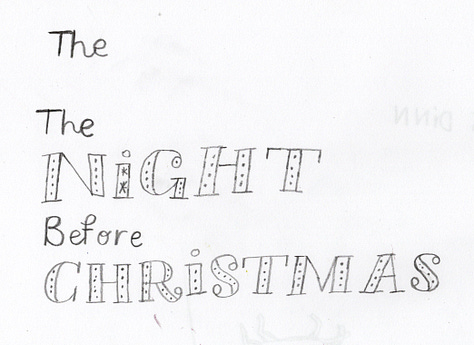 The
The
NiGHT
Before
CHRiSTMAS